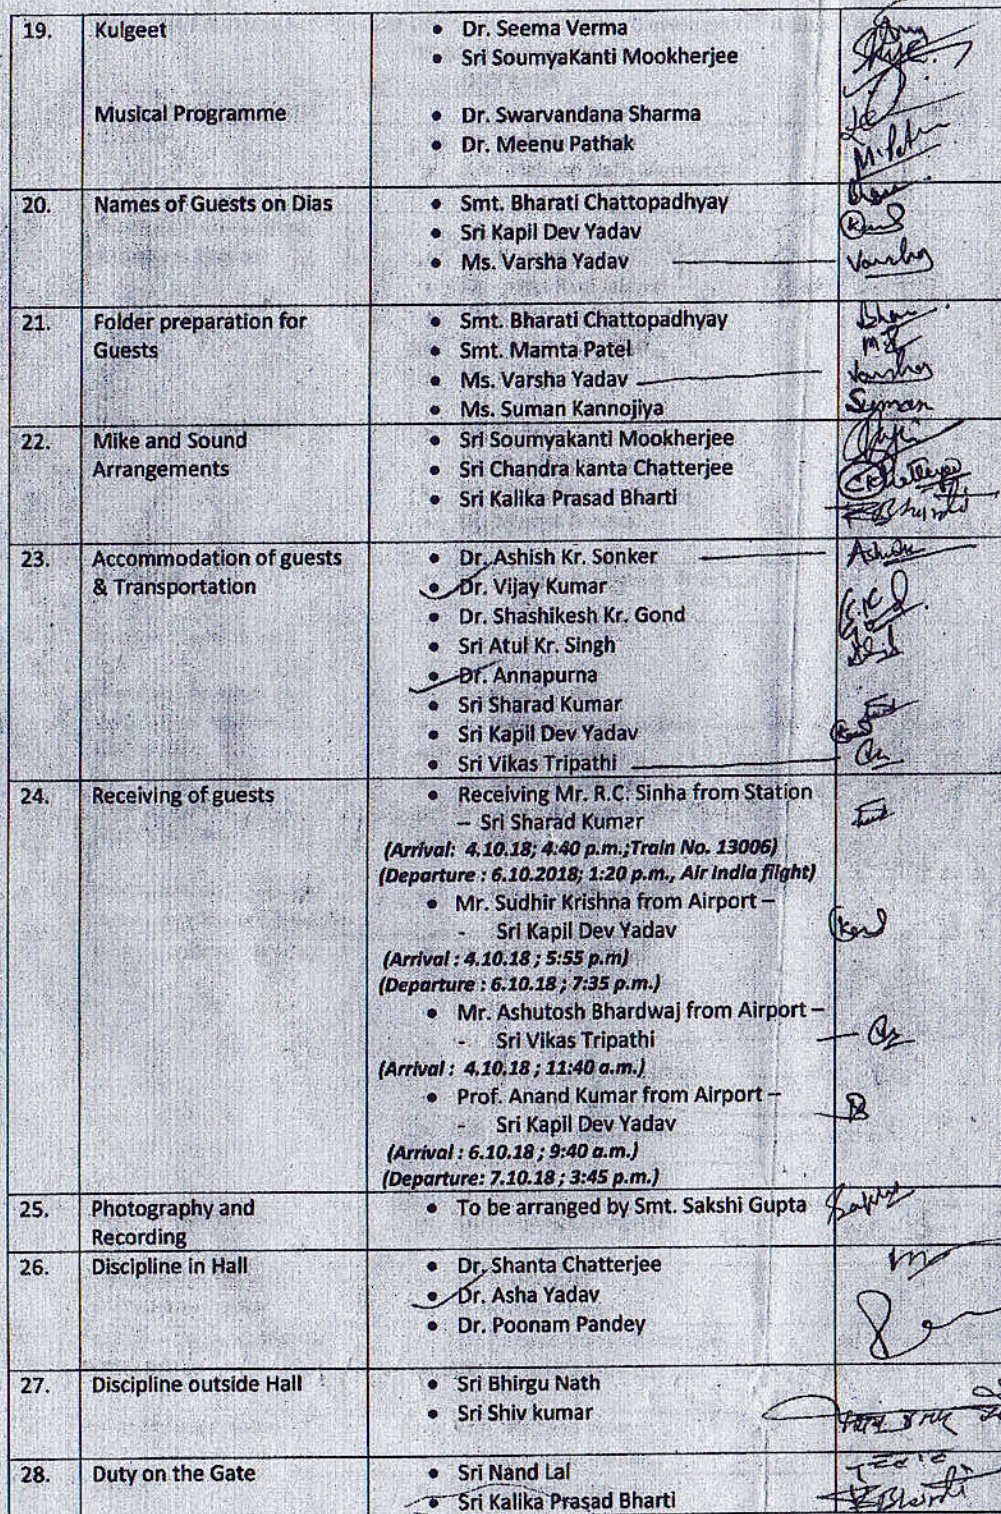 19. Kulgeet • Dr. Seema Verma
• Sri SoumyaKanti Mookherjee
Musical Programme • Dr. Swarvandana Sharma
• Dr. Meenu Pathak
20. Names of Guests on Dias • Smt. Bharati Chattopadhyay
• Sri Kapil Dev Yadav
• Ms. Varsha Yadav Varsha
21. Folder preparation for • Smt. Bharati Chattopadhyay
Guests • Smt. Mamta Patel
• Ms. Varsha Yadav Varsha
• Ms. Suman Kannojiya Suman
22. Mike and Sound • Sri Soumyakanti Mookherjee
Arrangements • Sri Chandra kanta Chatterjee
• Sri Kalika Prasad Bharti KBharti
23. Accommodation of guests • Dr. Ashish Kr. Sonker
& Transportation • Dr. Vijay Kumar
• Dr. Shashikesh Kr. Gond
• Sri Atul Kr. Singh
• Dr. Annapurna
• Sri Sharad Kumar
• Sri Kapil Dev Yadav
• Sri Vikas Tripathi
24. Receiving of guests • Receiving Mr. R.C. Sinha from Station
– Sri Sharad Kumar
(Arrival: 4.10.18; 4:40 p.m.;Train No. 13006)
(Departure : 6.10.2018; 1:20 p.m., Air India flight)
• Mr. Sudhir Krishna from Airport –
- Sri Kapil Dev Yadav
(Arrival : 4.10.18 ; 5:55 p.m)
(Departure : 6.10.18 ; 7:35 p.m.)
• Mr. Ashutosh Bhardwaj from Airport –
- Sri Vikas Tripathi
(Arrival : 4.10.18 ; 11:40 a.m.)
• Prof. Anand Kumar from Airport –
- Sri Kapil Dev Yadav
(Arrival : 6.10.18 ; 9:40 a.m.)
(Departure: 7.10.18 ; 3:45 p.m.)
25. Photography and • To be arranged by Smt. Sakshi Gupta
Recording
26. Discipline in Hall • Dr. Shanta Chatterjee
• Dr. Asha Yadav
• Dr. Poonam Pandey
27. Discipline outside Hall • Sri Bhirgu Nath
• Sri Shiv kumar
28. Duty on the Gate • Sri Nand Lal
• Sri Kalika Prasad Bharti KBharti